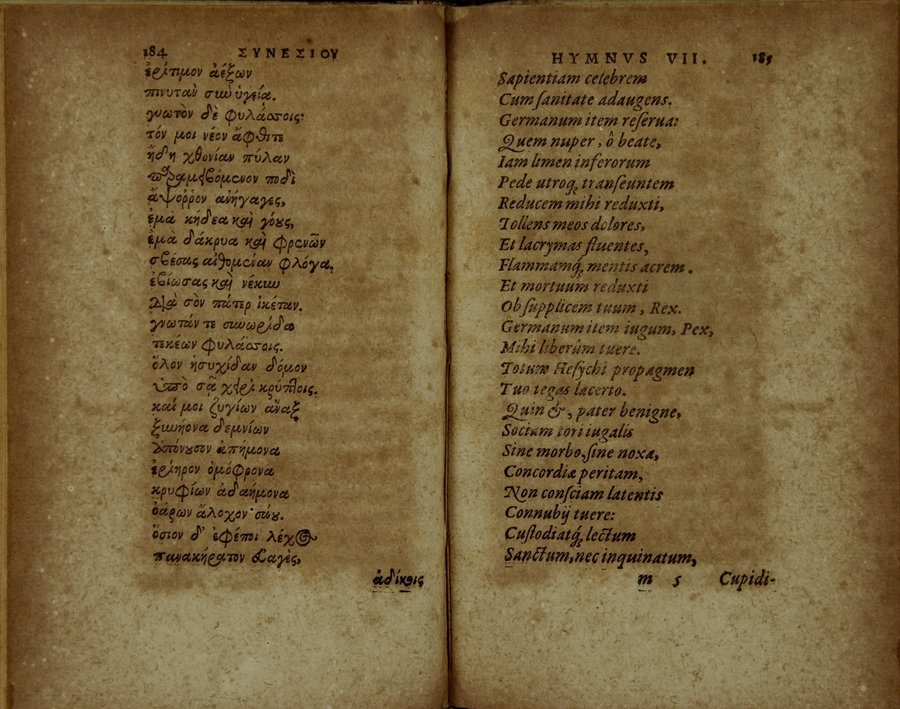 184 ΣΥΝΕΣΙΟΥ
ἐρίτιμον ἀέξων
πινυτὰν σὺν ὑγείᾳ.
γνωτὸν δὲ φυλάσσοις·
τόν μοι νέον ἄφθιτε
ἤδη χθονίαν πύλαν
παραμειβόμενον ποδὶ
ἄψορρον ἀνήγαγες,
ἐμὰ κήδεα καὶ γόους,
ἐμὰ δάκρυα καὶ φρενῶν
σβέσας αἰθομέναν φλόγα.
ἐβίωσας καὶ νέκυν
Διὰ σὸν πάτερ ἱκέταν.
γνωτάν τε συνωρίδα
τεκέων φυλάσσοις.
ὅλον ἡσυχίδαν δόμον
ὑπὸ σᾷ χειρὶ κρύπτοις.
καί μοι ζυγίων ἄναξ
ξυνήονα δεμνίων
ἀπόνουσον ἀπήμονα
ἐρίηρον ὁμόφρονα
κρυφίων ἀδαήμονα
ὀάρων ἄλοχον σάου.
ὅσιον δ' ἐφέποι λέχος
πανακήρατον εὐαγὲς,
ἀδίκοις
HYMNVS VII. 185
Sapientiam celebrem
Cum sanitate adaugens.
Germanum item reserua:
Quem nuper, ô beate,
Iam limen inferorum
Pede utroq; transeuntem
Reducem mihi reduxti,
Tollens meos dolores,
Et lacrymas fluentes,
Flammamq; mentis acrem.
Et mortuum reduxti
Ob supplicem tuum, Rex.
Germanum item iugum, Pex,
Mihi liberûm tuere.
Totum Hesychi propagmen
Tuo tegas lacerto.
Quin &, pater benigne,
Sociam tori iugalis
Sine morbo, sine noxa,
Concordiæ peritam,
Non consciam latentis
Connubij tuere:
Custodiatq; lectum
Sanctum, nec inquinatum,
m 5 Cupidi-